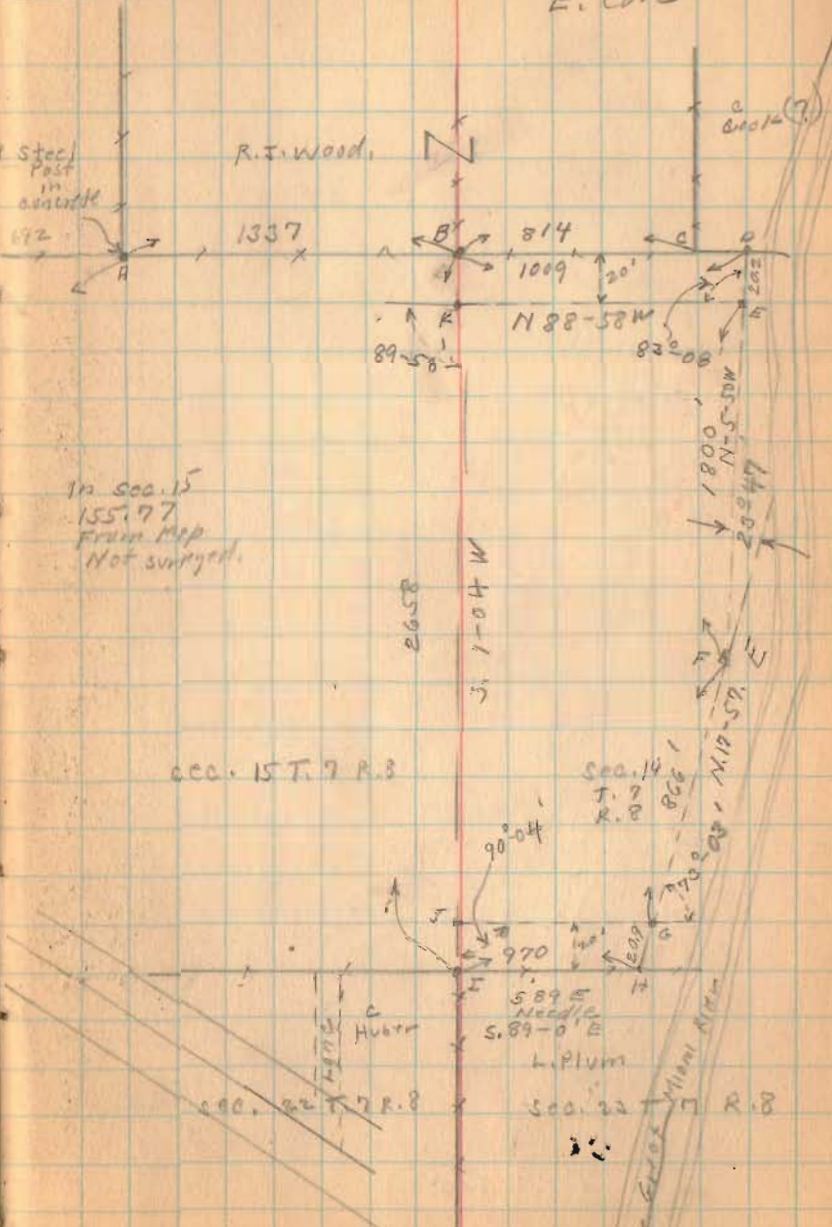 Steel
Post
in
concrete
692
R.J. Wood.
N
C
Cook (?)
A
1337
B
814
1009
20'
C
D
20.2
K
N 88-58W
83°-08
89-58'
E
1800'
N-5-50W
23°47'
In sec. 15
155.77
From Map
Not surveyed.
2658
S. 1-04 W
F
sec. 15 T. 7 R. 8
Sec. 14
T. 7
R. 8
866'
N. 17-57.
90°-04'
J
G
970
20'
20.9
H
S 89 E
Needle
S. 89-0' E
C
Huber
Lane
L. Plum
Sec. 22 T 7 R. 8
Sec. 23 T 7 R. 8
Great Miami River